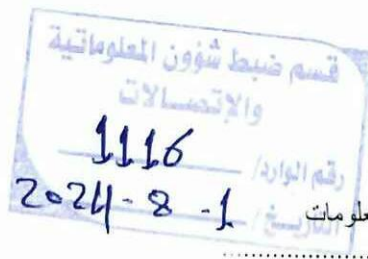 قسم ضبط شؤون المعلوماتية
والإتصالات
رقم الوارد/ 1116
التاريخ/ 2024-8-1
علومات